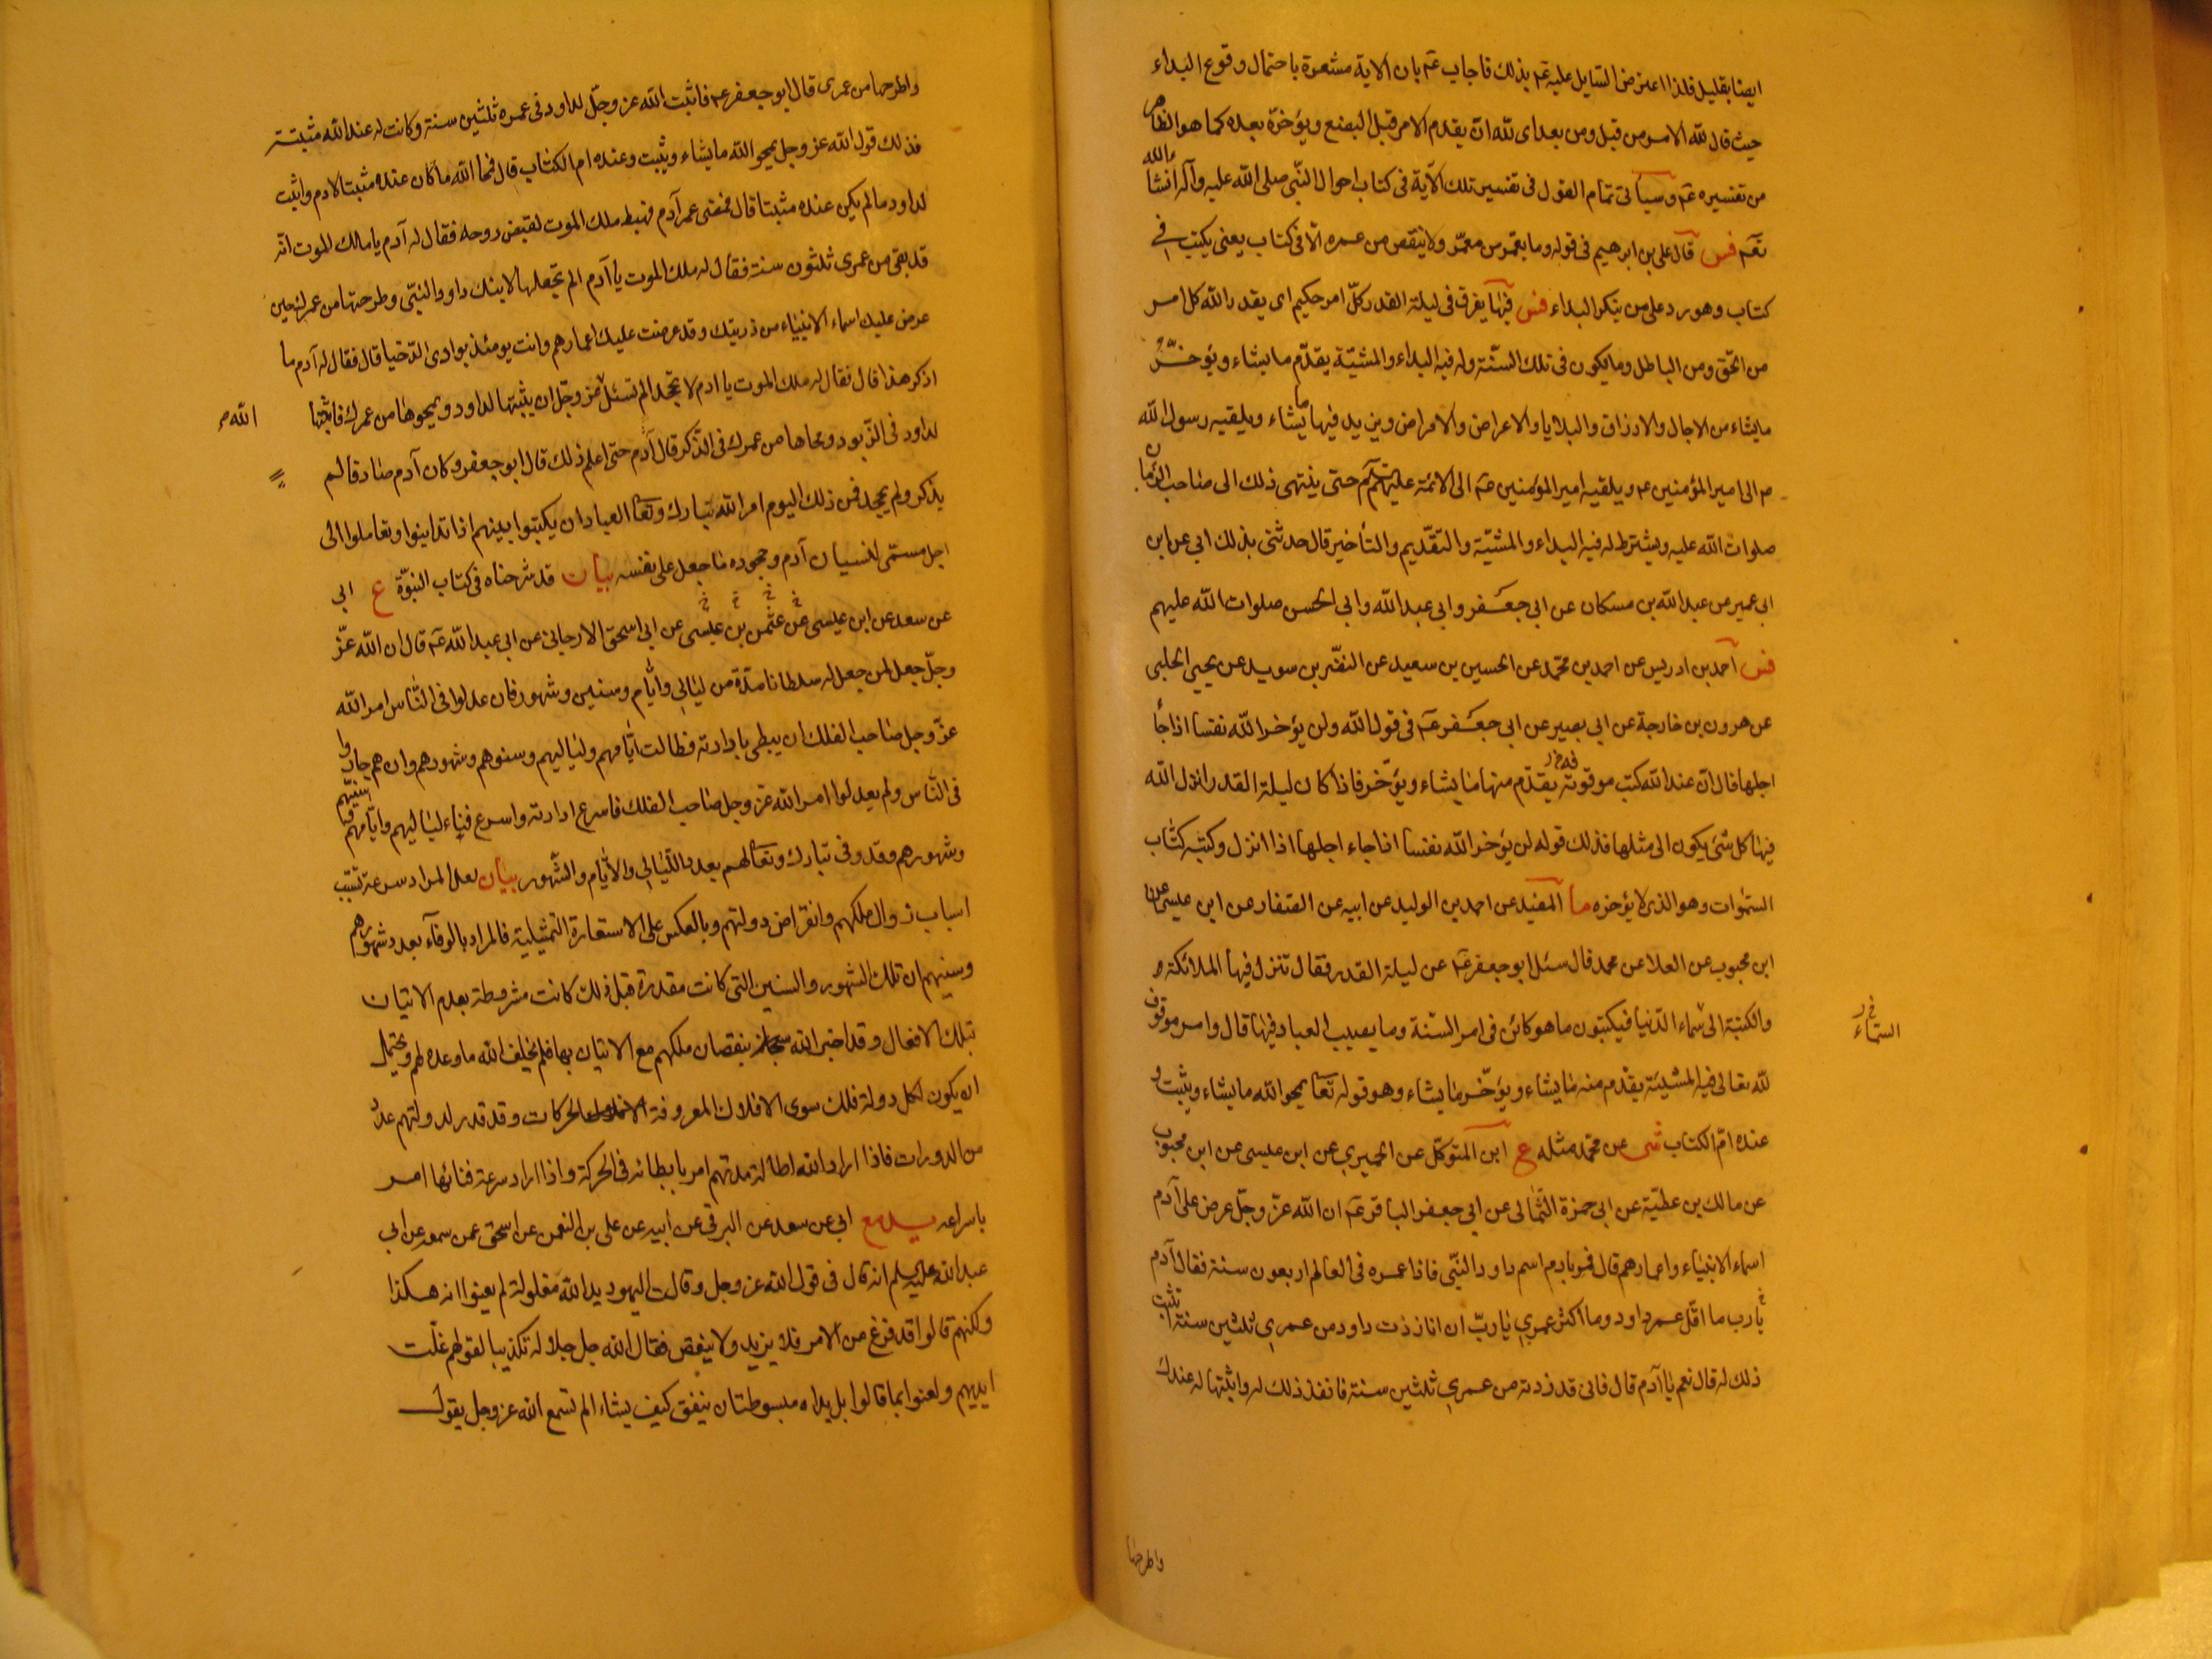 ايضا بقليل فلذا اعترض السايل عليه عم بذلك فاجاب عم بان الاية مشعرة باحتمال وقوع البداء
حيث قال لله الامر من قبل ومن بعد اى لله ان يقدم الامر قبل البضع ويؤخره بعده كما هو الظاهر
من تفسيره عم وسياتى تمام القول فى تفسير تلك الآية فى كتاب احوال النبى صلى الله عليه وآله انشا الله
تعم فس قال على بن ابرهيم فى قوله وما يعمر من معمر ولا ينقص من عمره الا فى كتاب يعنى يكتب فى
كتاب وهو رد على من ينكر البداء فس فيها يفرق فى ليلة القدر كل امر حكيم اى يقدر الله كل امر
من الحق ومن الباطل وما يكون فى تلك السنة وله فيه البداء والمشية يقدم ما يشاء ويؤخر
ما يشاء من الاجال والارزاق والبلايا والاعراض والامراض ويزيد فيها ما يشاء ويلقيه رسول الله
ص الى امير المؤمنين ع ويلقيه امير المؤمنين عم الى الائمة عليهم السلم حتى ينتهى ذلك الى صاحب الزمان
صلوات الله عليه ويشترط له فيه البداء والمشية والتقديم والتأخير قال حدثنى بذلك ابى عن ابن
ابى عمير عن عبد الله بن مسكان عن ابى جعفر وابى عبد الله وابى الحسن صلوات الله عليهم
فس احمد بن ادريس عن احمد بن محمد عن الحسين بن سعيد عن النضر بن سويد عن يحيى الحلبى
عن هرون بن خارجة عن ابى بصير عن ابى جعفر عم فى قول الله ولن يؤخر الله نفسا اذا جاء
اجلها قال ان عند الله كتب موقوتة يقدم منها ما يشاء ويؤخر فاذا كان ليلة القدر انزل الله
فيها كل شئ يكون الى مثلها فذلك قوله لن يؤخر الله نفسا اذا جاء اجلها اذا انزل وكتبه كتاب
السموات وهو الذى لا يؤخره ما المفيد عن احمد بن الوليد عن ابيه عن الصفار عن ابن عيسى عن
ابن محبوب عن العلا عن محمد قال سئل ابو جعفر عم عن ليلة القدر فقال تنزل فيها الملائكة و
والكتبة الى سماء الدنيا فيكتبون ما هو كائن فى امر السنة وما يصيب العباد فيها قال وامر موقوف
السماء
لله تعالى فيه المشية يقدم منه ما يشاء ويؤخر ما يشاء وهو قوله تعا يمحو الله ما يشاء ويثبت و
عنده ام الكتاب شى عن محمد مثله ع ابن المتوكل عن الحميرى عن ابن عيسى عن ابن محبوب
عن مالك بن عطية عن ابى حمزة الثمالى عن ابى جعفر الباقر عم ان الله عز وجل عرض على آدم
اسماء الانبياء واعمارهم قال فمر بادم اسم داود النبى فاذا عمره فى العالم اربعون سنة فقال آدم
يا رب ما اقل عمر داود وما اكثر عمرى يا رب ان انا زدت داود من عمرى ثلثين سنة اتثبت
ذلك له قال نعم يا آدم قال فانى قد زدته من عمرى ثلثين سنة فانفذ ذلك له واثبتها له عندك
واطرحها
واطرحها من عمرى قال ابو جعفر ع فاثبت الله عز وجل لداود فى عمره ثلثين سنة وكانت له عند الله مثبتة
فذلك قول الله عز وجل يمحو الله ما يشاء ويثبت وعنده ام الكتاب قال فمحا الله ما كان عنده مثبتا لادم واثبت
لداود ما لم يكن عنده مثبتا قال فمضى عمر آدم فهبط ملك الموت لقبض روحه فقال له آدم يا مالك الموت انه
قد بقى من عمرى ثلثون سنة فقال له ملك الموت يا آدم الم تجعلها لابنك داود النبى وطرحتها من عمرك حين
عرض عليك اسماء الانبياء من ذريتك وقد عرضت عليك اعمارهم وانت يومئذ بوادى الدخيا قال فقال له آدم ما
اذكر هذا قال فقال له ملك الموت يا ادم لا تجحد الم تسئل عز وجل ان يثبتها لداود ويمحوها من عمرك فاثبتها
الله ص
لداود فى الزبور ومحاها من عمرك فى الذكر قال آدم حتى اعلم ذلك قال ابو جعفر وكان آدم صادقا لم
يذكر ولم يجحد فمن ذلك اليوم امر الله تبارك وتعا العباد ان يكتبوا بينهم اذا تداينوا وتعاملوا الى
اجل مسمى لنسيان آدم وجحوده ما جعل على نفسه بيان قد شرحناه فى كتاب النبوة ع ابى
عن سعد عن ابن عيسى عن عثمن بن عيسى عن ابى اسحق الارجانى عن ابى عبد الله عم قال ان الله عز
وجل جعل لمن جعل له سلطانا مدة من ليالى وايام وسنين وشهور فان عدلوا فى الناس امر الله
عز وجل صاحب الفلك ان يبطى بادارته فطالت ايامهم ولياليهم وسنوهم وشهورهم وان هم جاروا
فى الناس ولم يعدلوا امر الله عز وجل صاحب الفلك فاسرع ادارته واسرع فناء لياليهم وايامهم وسنيهم
وشهورهم وقد وفى تبارك وتعا لهم بعدد الليالى والايام والشهور بيان لعل المراد سرعة تسبب
اسباب زوال ملكهم وانقراض دولتهم وبالعكس على الاستعارة التمثيلية فالمراد بالوفآء بعدد شهورهم
وسنيهم ان تلك الشهور والسنين التى كانت مقدرة قبل ذلك كانت مشروطة بعدم الاتيان
بتلك الافعال وقد اخبر الله بنقصان ملكهم مع الاتيان بها فلم يخلف الله ما وعده لهم ويحتمل
ان يكون لكل دولة فلك سوى الافلاك المعروفة الحركات وقد قدر لدولتهم عدد
من الدورات فاذا اراد الله اطالة مدتهم امر بابطائه فى الحركة واذا اراد سرعة فنائها امر
باسراعه يد مع ابى عن سعد عن البرقى عن ابيه عن على بن النعمن عن اسحق عمن سمعه عن ابى
عبد الله عليه السلم انه قال فى قول الله عز وجل وقالت اليهود يد الله مغلولة لم يعنوا انه هكذا
ولكنهم قالوا قد فرغ من الامر فلا يزيد ولا ينقص فقال الله جل جلاله تكذيبا لقولهم غلت
ايديهم ولعنوا بما قالوا بل يداه مبسوطتان ينفق كيف يشاء الم تسمع الله عز وجل يقول